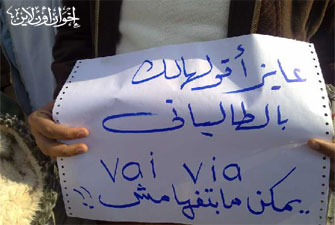 إخوان أون لاين
عايز أقولهالك
بالطاليانى
vai via
..يمكن مابتفهامش!!